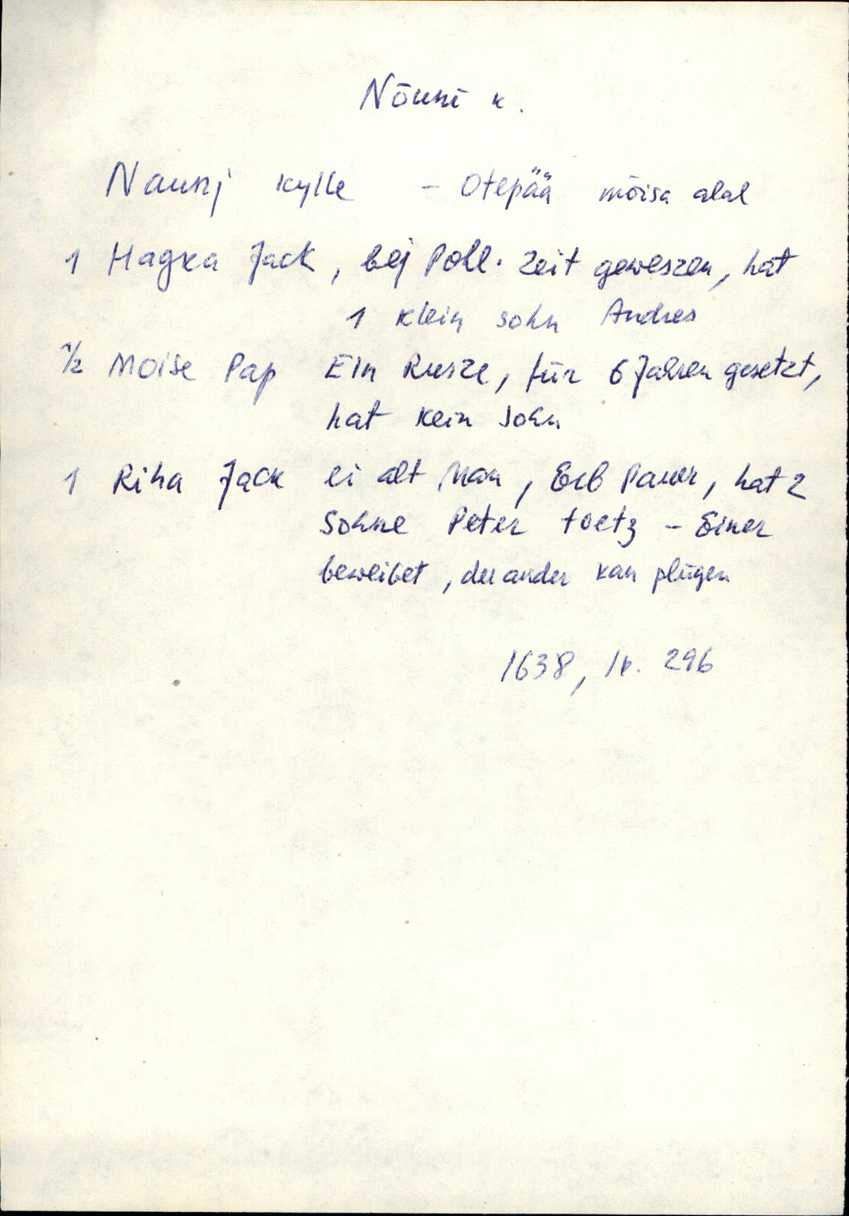 Nõuni k.
Naunj kylle - Otepää mõisa alal
1 Hagka Jack, bej Pohl. Zeit geweszen, hat
1 klein sohn Andres
1/2 Moise Pap Ein Rusze, für 6 Jahren gesetzt,
hat kein sohn
1 Riha Jack ei alt Man, Erb Pauer, hat 2
Sohne Peter toetz - Einer
beweibet, der ander kan plugen
1638, lk. 296